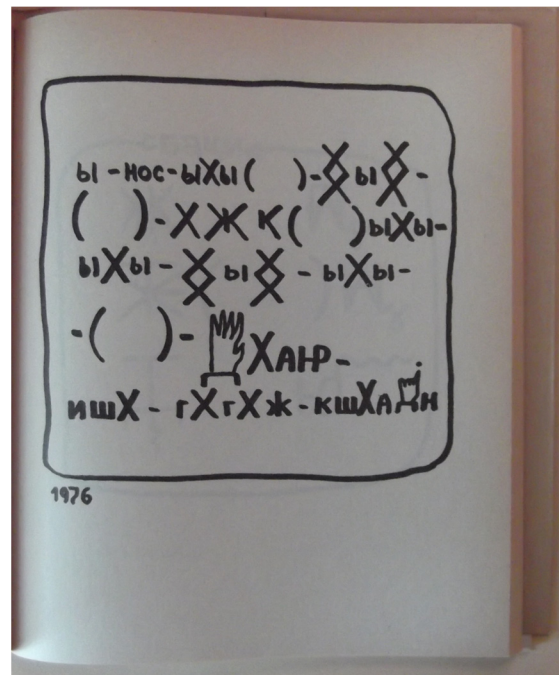 ы-нос-ыХы( )-XXыXX-
( )-ХЖК( )ыХы-
ыХы-XXыXX-ыХы-
-( )-ХАНР-
ишХ-гХгХж-кшХАн
1976